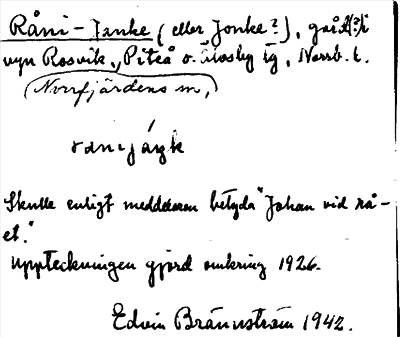 Råni-Janke (eller Jonke?), gård(?) i
byn Rosvik, Piteå o. Älvsby tg, Norrb. l.
(Norrfjärdens sn,)
Skulle enligt meddelaren betyda "Johan vid rå-
et."
Uppteckningen gjord omkring 1926.
Edvin Brännström 1942.